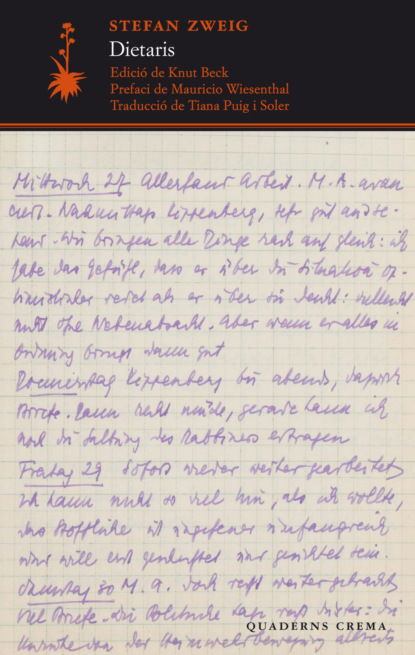 STEFAN ZWEIG
Dietaris
Edició de Knut Beck
Prefaci de Mauricio Wiesenthal
Traducció de Tiana Puig i Soler
Mittwoch 27 Allerhand Arbeit. M. A. avan
ciert. Nachmittags Kippenberg, sehr gut
Wir bringen alle Dinge rasch auf gleich: ich
habe das Gefühl, dass er über die Situation op-
timistischer redet als er über sie denkt: vielleicht
nicht ohne Nebenabsicht. Aber wenn er alles in
Ordnung bringt dann gut
Donnerstag Kippenberg bis abends,
Briefe. Dann recht müde, gerade kann ich
noch die des Rabbiners ertragen
Freitag 29 Sofort wieder weiter gearbeitet
Ich kann nicht so viel hin, als ich wollte,
das Stoffliche ist ungeheuer umfangreich
und will erst und gesichtet sein.
Samstag 30 M. A. doch recht weitergebracht
Viel Briefe. Die Politische Lage recht düster: die
von der Heimwehrbewegung
QUADERNS CREMA